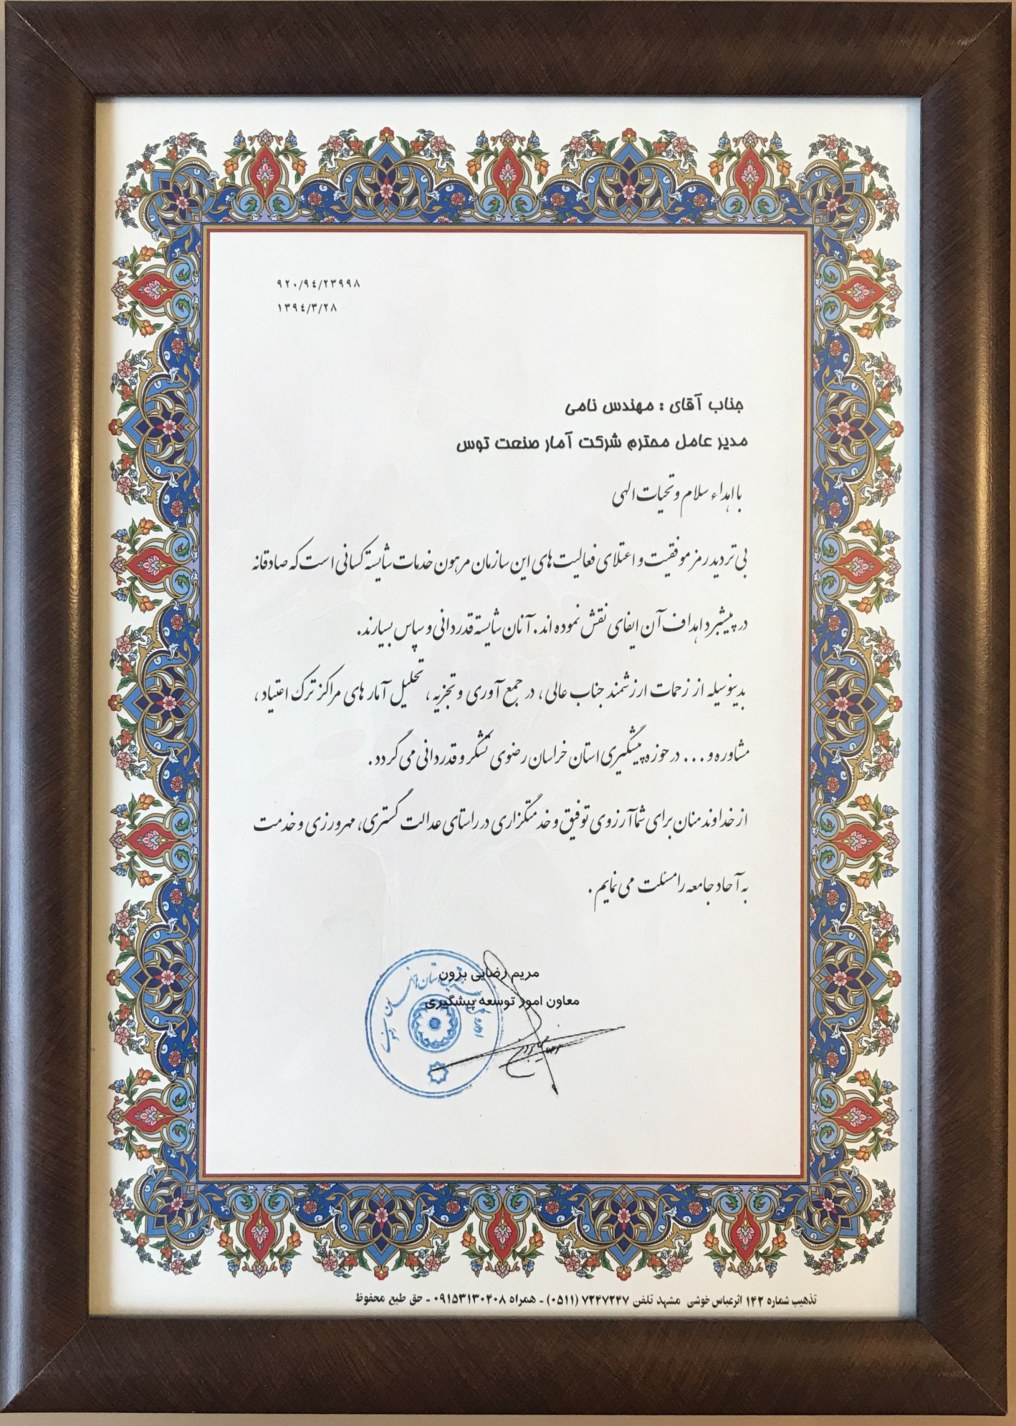 ۹۲۰/۹۴/۲۳۹۹۸
۱۳۹۴/۳/۲۸
جناب آقای : مهندس نامی
مدیر عامل محترم شرکت آمار صنعت توس
با اهداء سلام و تحیات الهی
بی تردید رمز موفقیت و اعتلای فعالیت های این سازمان مرهون خدمات شایسته کسانی است که صادقانه
در پیشبرد اهداف آن ایفای نقش نموده اند. آنان شایسته قدردانی و سپاس بسیارند.
بدینوسیله از زحمات ارزشمند جناب عالی ، در جمع آوری و تجزیه ، تحلیل آمار های مراکز ترک اعتیاد ،
مشاوره و ... در حوزه پیشگیری استان خراسان رضوی تشکر و قدردانی می گردد .
از خداوند منان برای شما آرزوی توفیق و خدمتگزاری در راستای عدالت گستری، مهرورزی و خدمت
به آحاد جامعه را مسئلت می نمایم .
مریم رضایی بزون
معاون امور توسعه پیشگیری
تذهیب شماره ۱۴۲ اثرعباس خوشی مشهد تلفن ۷۲۴۷۲۴۷ (۰۵۱۱) - همراه ۰۹۱۵۳۱۳۰۴۰۸ - حق طبع محفوظ